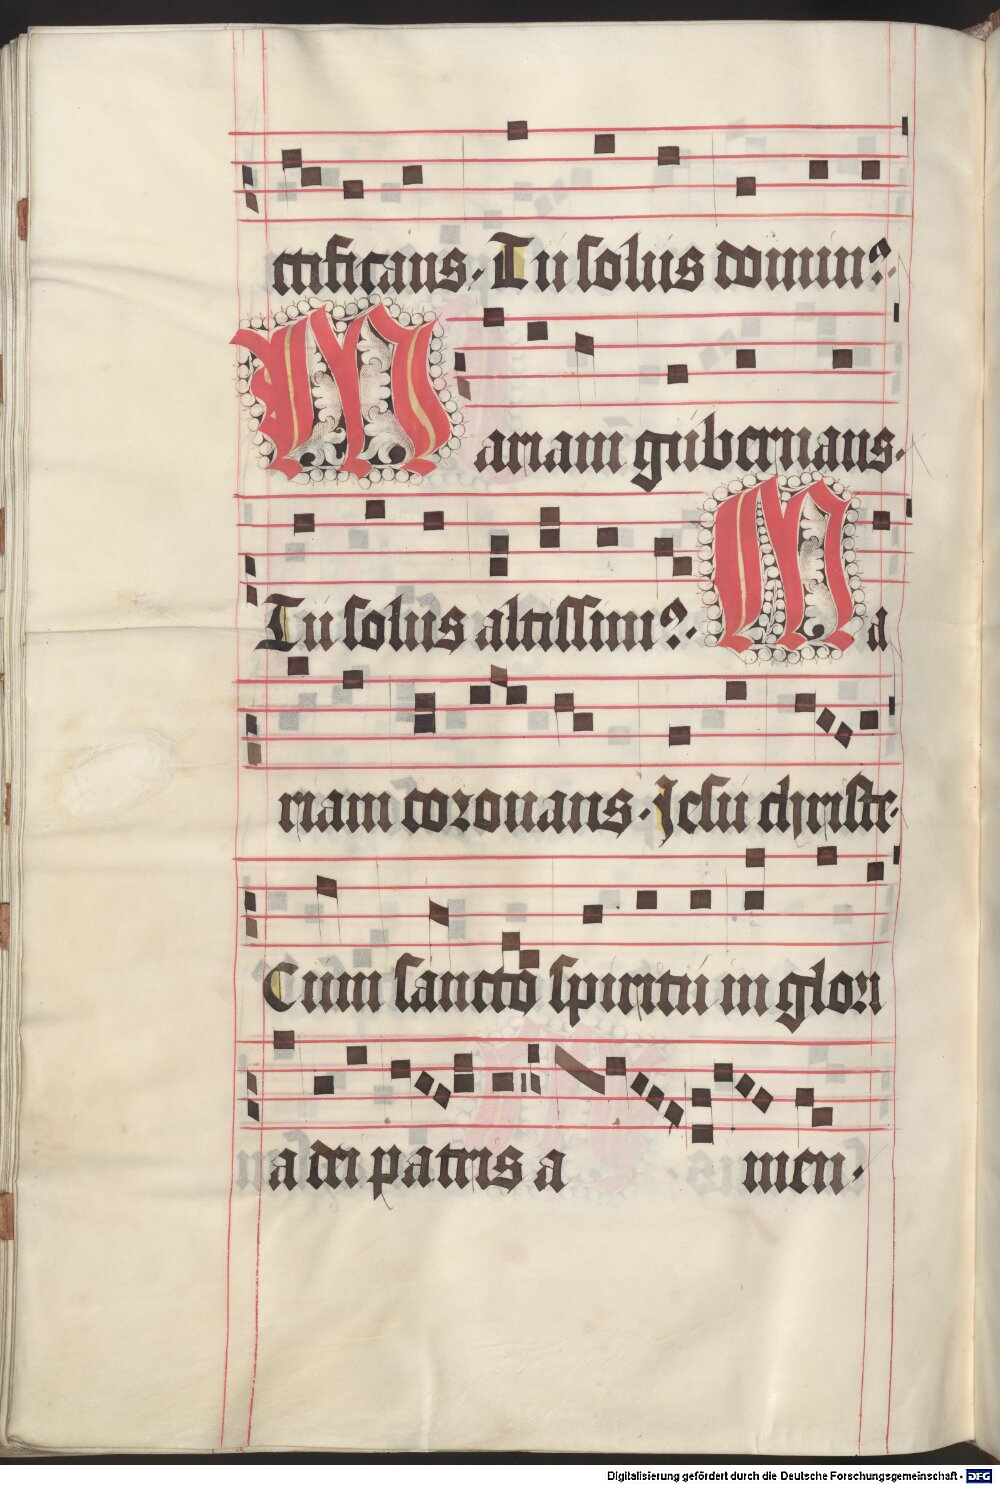 ctificans. Tu solus dominꝰ.
Mariam gubernans.
Tu solus altissimꝰ. Ma
riam coronans. Jesu christe.
Cum sancto spiritu in glori
a dei patris a men.
Digitalisierung gefördert durch die Deutsche Forschungsgemeinschaft - DFG